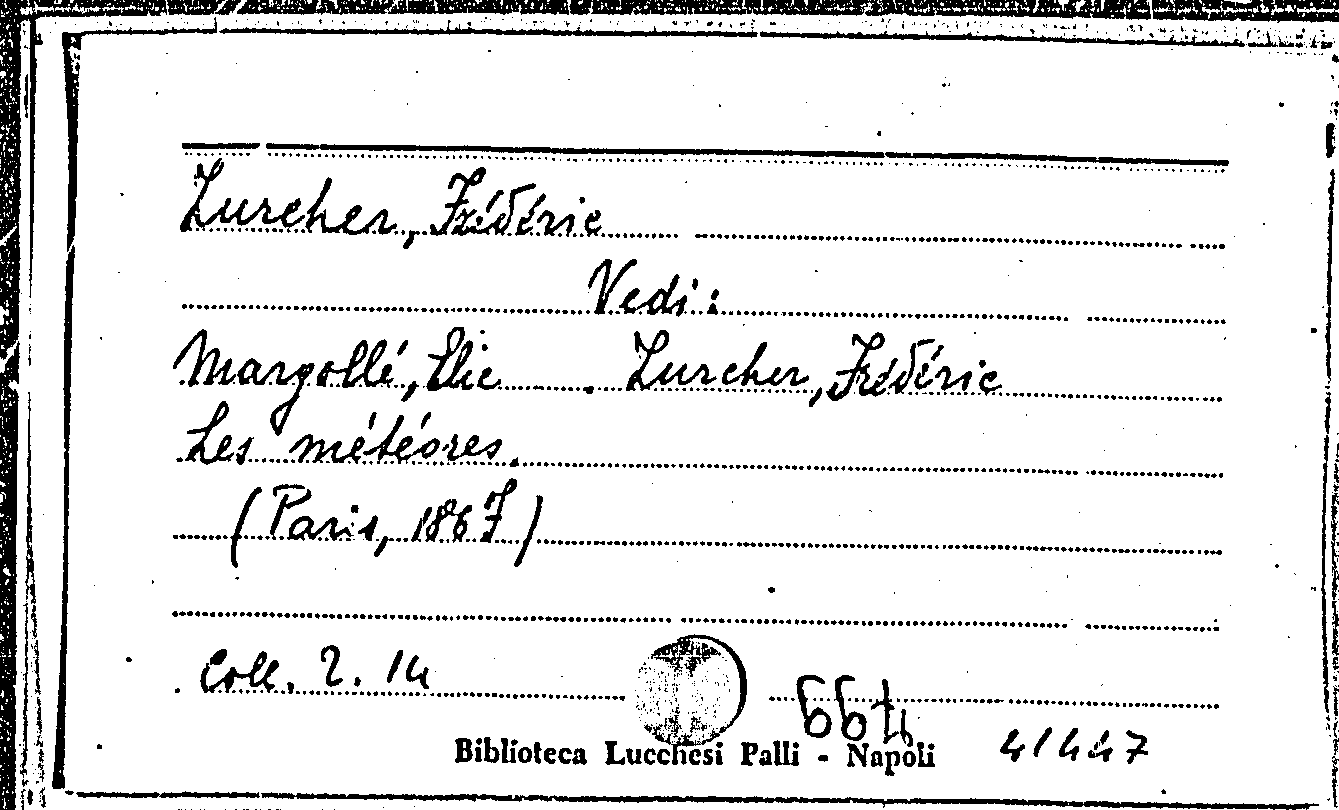 Zurcher, Frédéric
Vedi:
Margollé, Elie. Zurcher, Frédéric
Les météores.
(Paris, 1867)
Coll. 2. 14
Biblioteca Lucchesi Palli - Napoli 41447